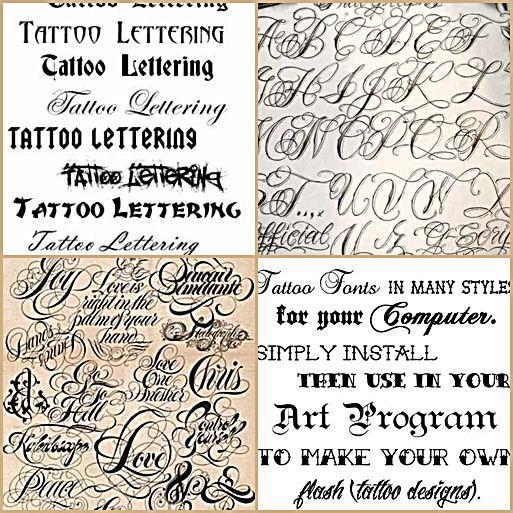 Tattoo Lettering
TATTOO LETTERING
Tattoo Lettering
Tattoo Lettering
TATTOO LETTERING
TATTOO LETTERING
TATTOO LETTERING
Tattoo Lettering
A B C D E F
H I J K L
M N O P Q R
S T U V W X
official
Joy
Love is
right in the
palm of your
hand
Go
To
Hell
Love
One
Another
Chris
Kaleidoscope
Love
Control
Yourself
Peace
&
Tattoo Fonts IN MANY STYLES
for your Computer.
SIMPLY INSTALL
THEN USE IN YOUR
Art Program
TO MAKE YOUR OWN
flash (tattoo designs).